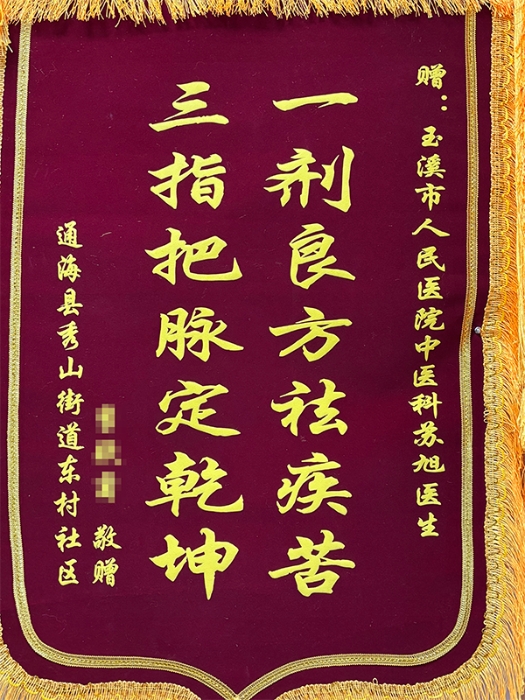 赠：玉溪市人民医院中医科苏旭医生
一剂良方祛疾苦
三指把脉定乾坤
敬赠
通海县秀山街道东村社区